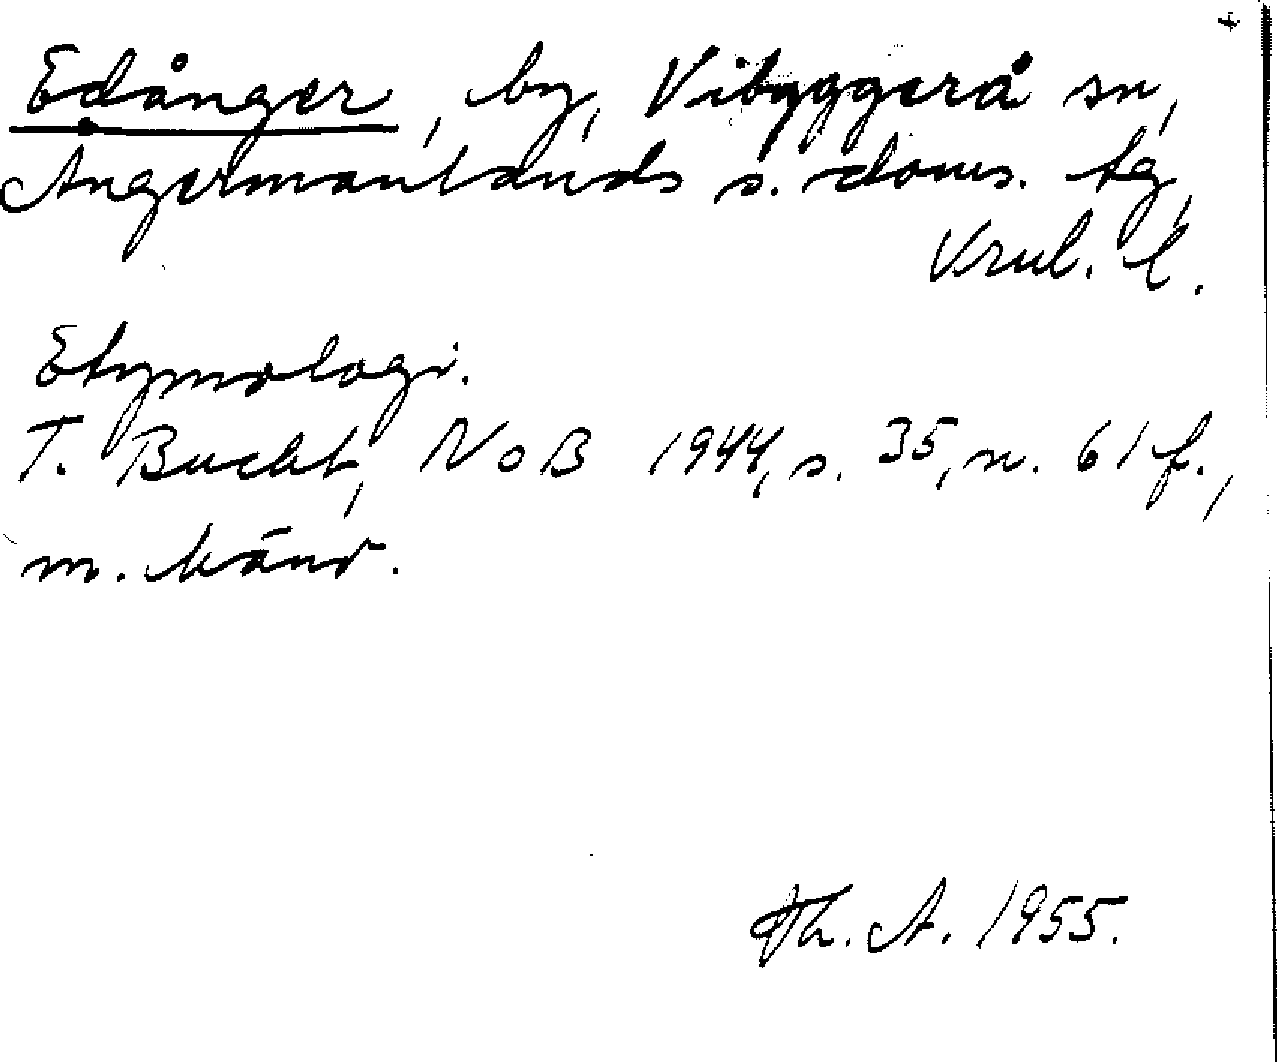 +
Edånger, by, Vibyggerå sn,
Ångermanlands s. doms. tg,
Vrnl. l.
Etymologi.
T. Bucht, NoB 1944, s. 35, n. 61 f.,
m. hänv.
Th. A. 1955.